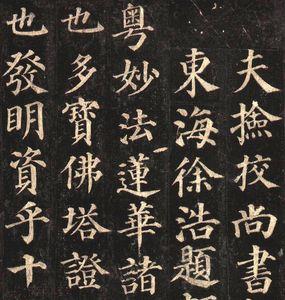 夫撿挍尚書
東海徐浩題
粵妙法蓮華諸
也多寶佛塔證
也發明資乎十